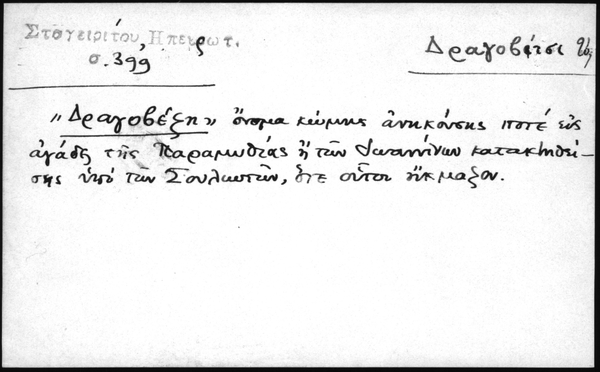 Σταγειρίτου, Ηπειρωτ.
σ. 399
Δραγοβέτσι
"Δραγοβέξη" ὄνομα κώμης ἀνηκούσης ποτέ εἰς
ἀγάδες τῆς Παραμυθίας ἢ τῶν Ἰωαννίνων κατακτηθεί-
σης ὑπό τῶν Σουλιωτῶν, ὅτε οὗτοι ἤκμαζον.